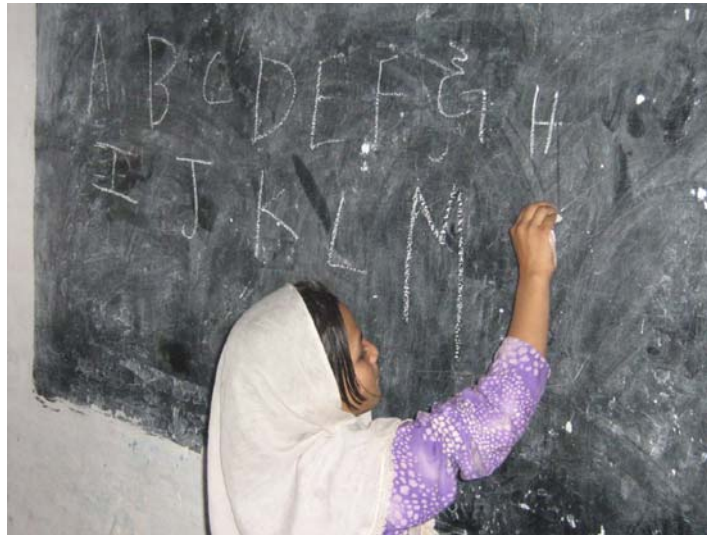 A B C D E F G H
I J K L M